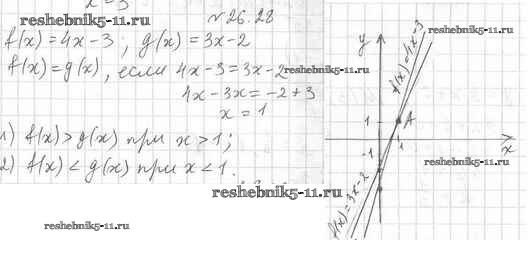 x = 3
reshebnik5-11.ru
№26.28
f(x)=4x-3; g(x)=3x-2
f(x)=g(x), если 4x-3=3x-2
reshebnik5-11.ru
4x-3x=-2+3
x=1
1) f(x)>g(x) при x>1;
2) f(x)<g(x) при x<1.
reshebnik5-11.ru
reshebnik5-11.ru
y
f(x)=4x-3
1
A
-1
1
x
reshebnik5-11.ru
f(x)=3x-2
reshebnik5-11.ru